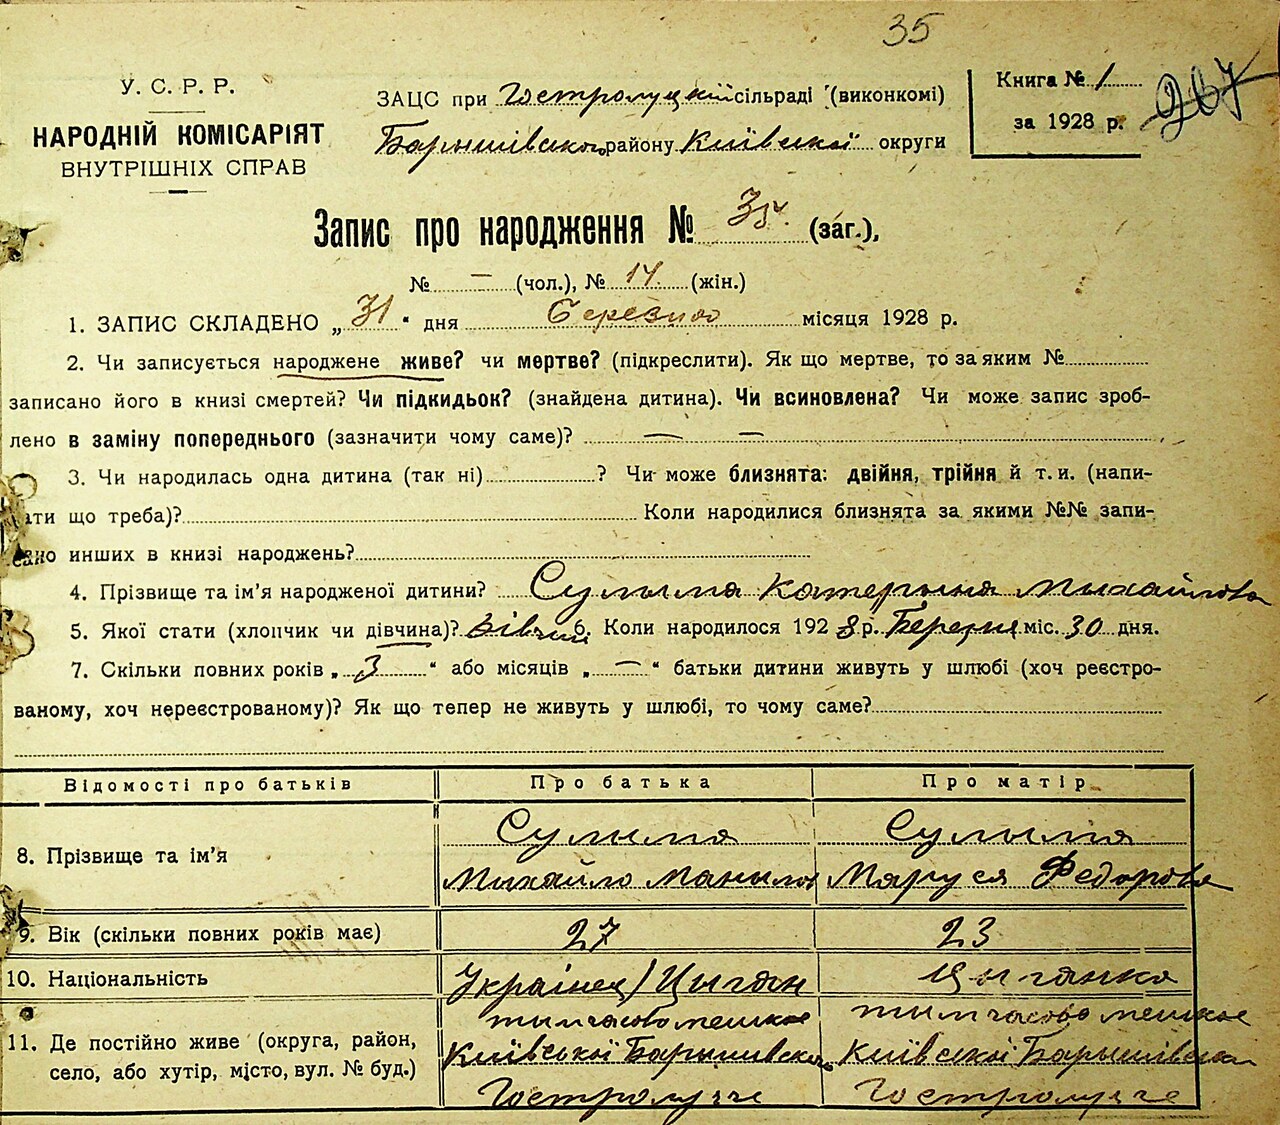 35
У. С. Р. Р.
НАРОДНІЙ КОМІСАРІЯТ
ВНУТРІШНІХ СПРАВ
ЗАЦС при Гостролуцкій сільраді (виконкомі)
Барышівського району Київскої округи
Книга № 1
за 1928 р.
267
Запис про народження № 35 (заг.),
№ — (чол.), № 14 (жін.)
1. ЗАПИС СКЛАДЕНО „31“ дня Березня місяця 1928 р.
2. Чи записується народжене живе? чи мертве? (підкреслити). Як що мертве, то за яким №
записано його в книзі смертей? Чи підкидьок? (знайдена дитина). Чи всиновлена? Чи може запис зроб-
лено в заміну попереднього (зазначити чому саме)? — —
3. Чи народилась одна дитина (так ні) ? Чи може близнята: двійня, трійня й т. и. (напи-
сати що треба)? Коли народилися близнята за якими №№ запи-
сано инших в книзі народжень?
4. Прізвище та ім’я народженої дитини? Сулыма Катерына Мыхайлова
5. Якої стати (хлопчик чи дівчина)? Дівчина 6. Коли народилося 1928 р. Березня міс. 30 дня.
7. Скільки повних років „3“ або місяців „—“ батьки дитини живуть у шлюбі (хоч реєстро-
ваному, хоч нереєстрованому)? Як що тепер не живуть у шлюбі, то чому саме?
Відомості про батьків Про батька Про матір
8. Прізвище та ім’я Сулыма Михайло Манылов Сулыма Маруся Федорова
9. Вік (скільки повних років має) 27 23
10. Національність Українец/Цыган Цыганка
11. Де постійно живе (округа, район,
село, або хутір, місто, вул. № буд.)
тымчасово мешкає
Київської Барышивско
Гостролучче
тымчасово мешкає
Київскої Барышівско
Гостролучче